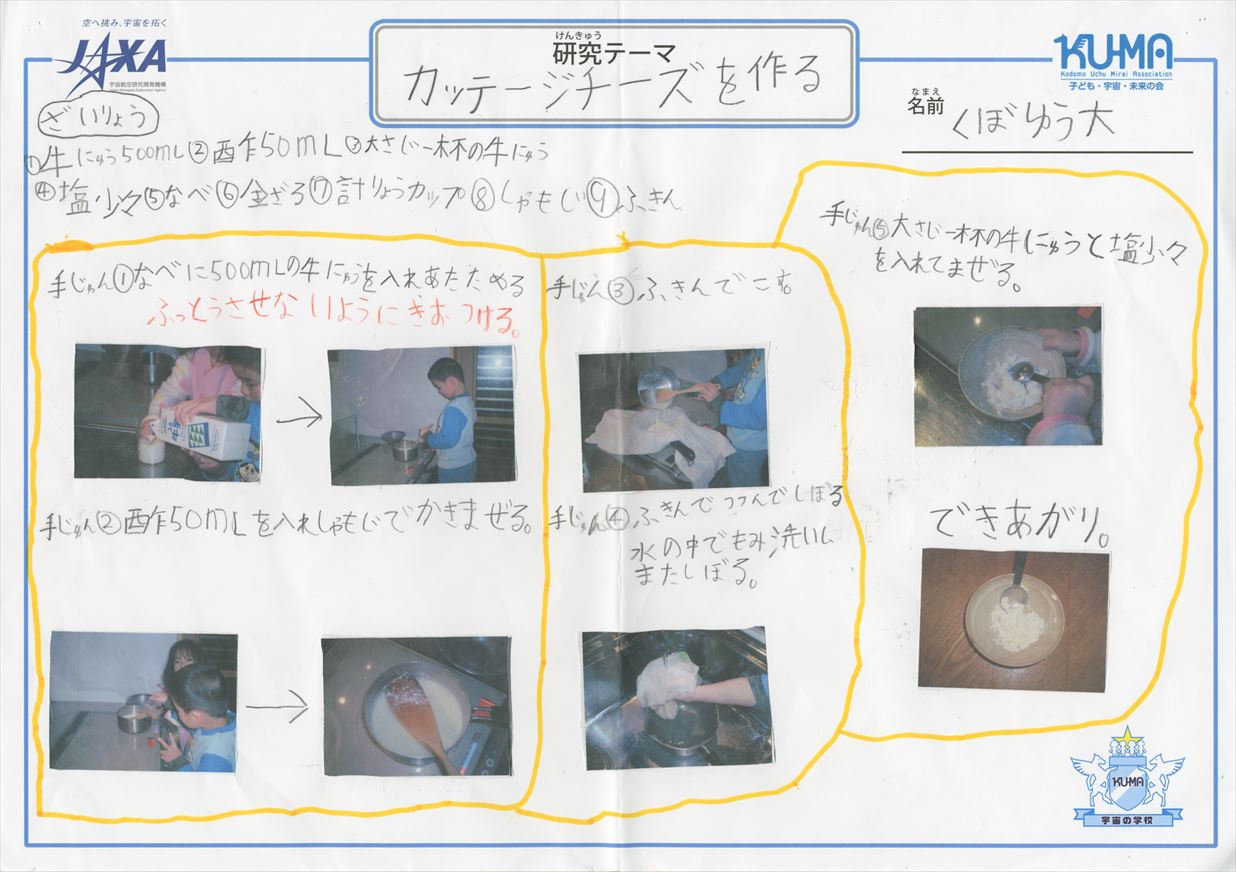 空へ挑み、宇宙を拓く
JAXA
宇宙航空研究開発機構
Japan Aerospace Exploration Agency
けんきゅう
研究テーマ
カッテージチーズを作る
KU-MA
Kodomo Uchu Mirai Association
子ども・宇宙・未来の会
なまえ
名前 くぼゆう大
ざいりょう
①牛にゅう500mL②酢50mL③大さじ一杯の牛にゅう
④塩少々⑤なべ⑥金ざる⑦計りょうカップ⑧しゃもじ⑨ふきん
手じゅん①なべに500mLの牛にゅうを入れあたためる
ふっとうさせないようにきおつける。
手じゅん②酢50mLを入れしゃもじでかきまぜる。
手じゅん③ふきんでこす
手じゅん④ふきんでつつんでしぼる
水の中でもみ洗いし
またしぼる。
手じゅん⑤大さじ一杯の牛にゅうと塩少々
を入れてまぜる。
できあがり。
KU-MA
宇宙の学校